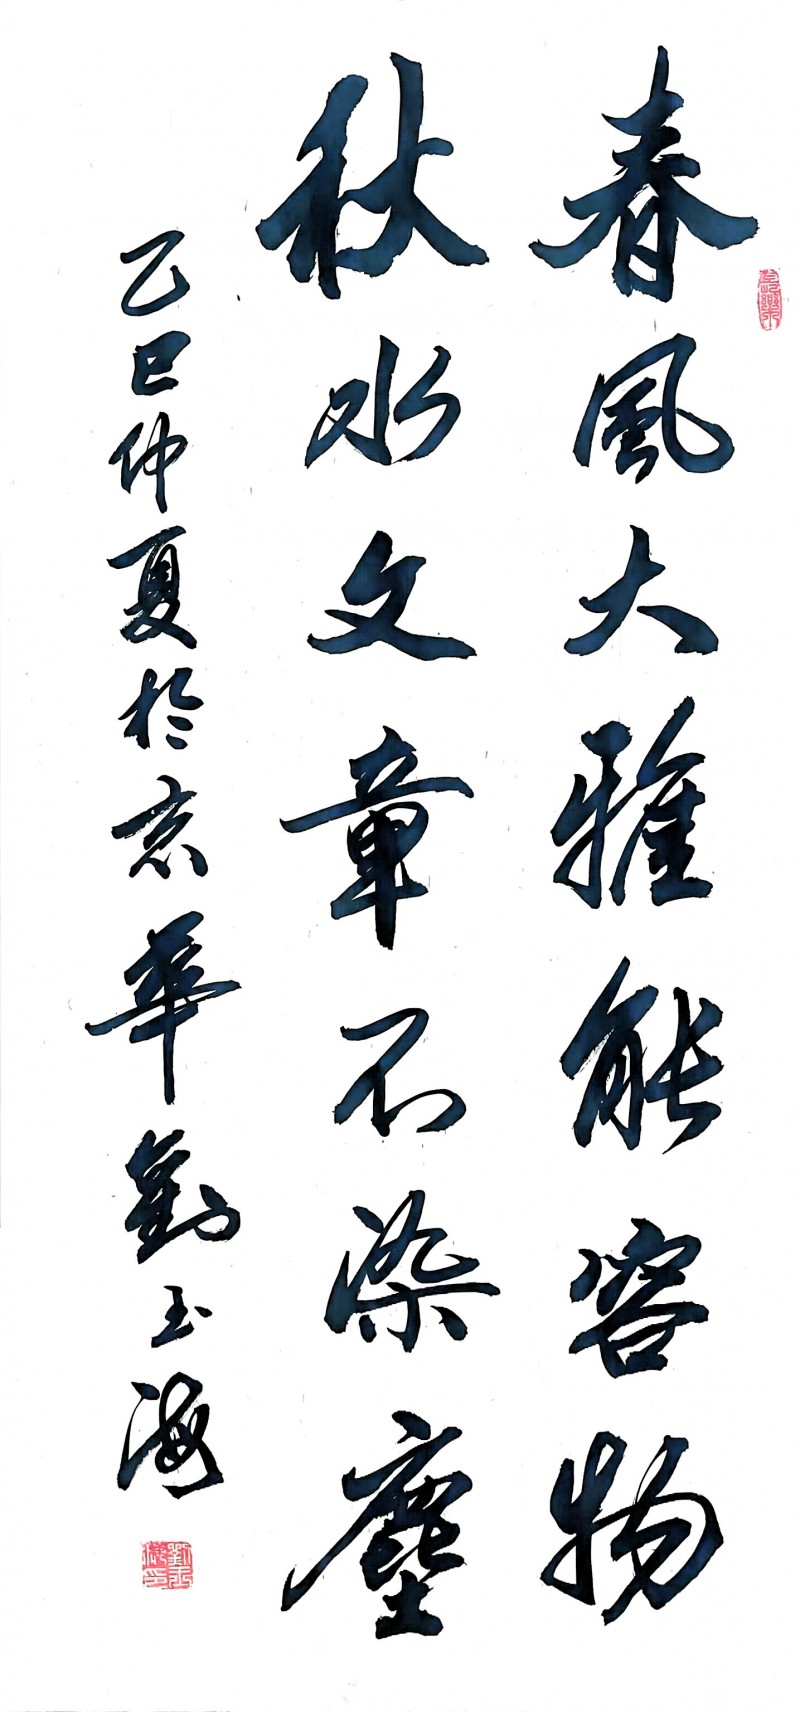 春風大雅能容物
秋水文章不染塵
乙巳仲夏於京華劉玉海